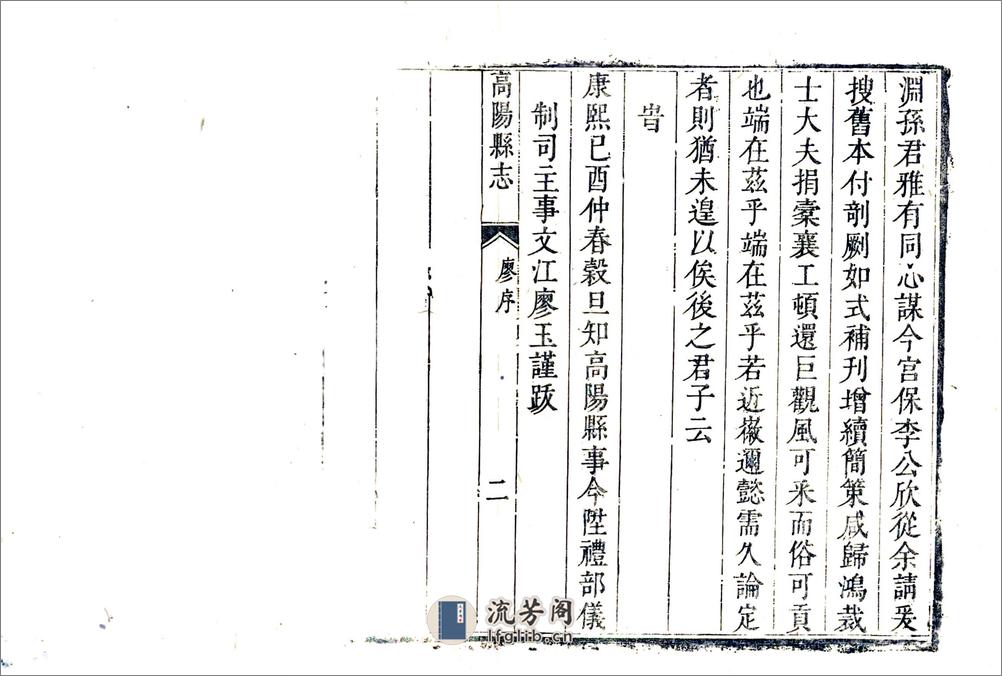 淵孫君雅有同心謀今宮保李公欣從余請爰
搜舊本付剞劂如式補刊增續簡策咸歸鴻裁
士大夫捐橐襄工頓還巨觀風可釆而俗可貢
也端在茲乎端在茲乎若近徽邇懿需久論定
者則猶未遑以俟後之君子云
旹
康熙己酉仲春穀旦知高陽縣事今陞禮部儀
制司主事文江廖玉謹跋
高陽縣志
廖序
二
流芳阁
lfglib.cn